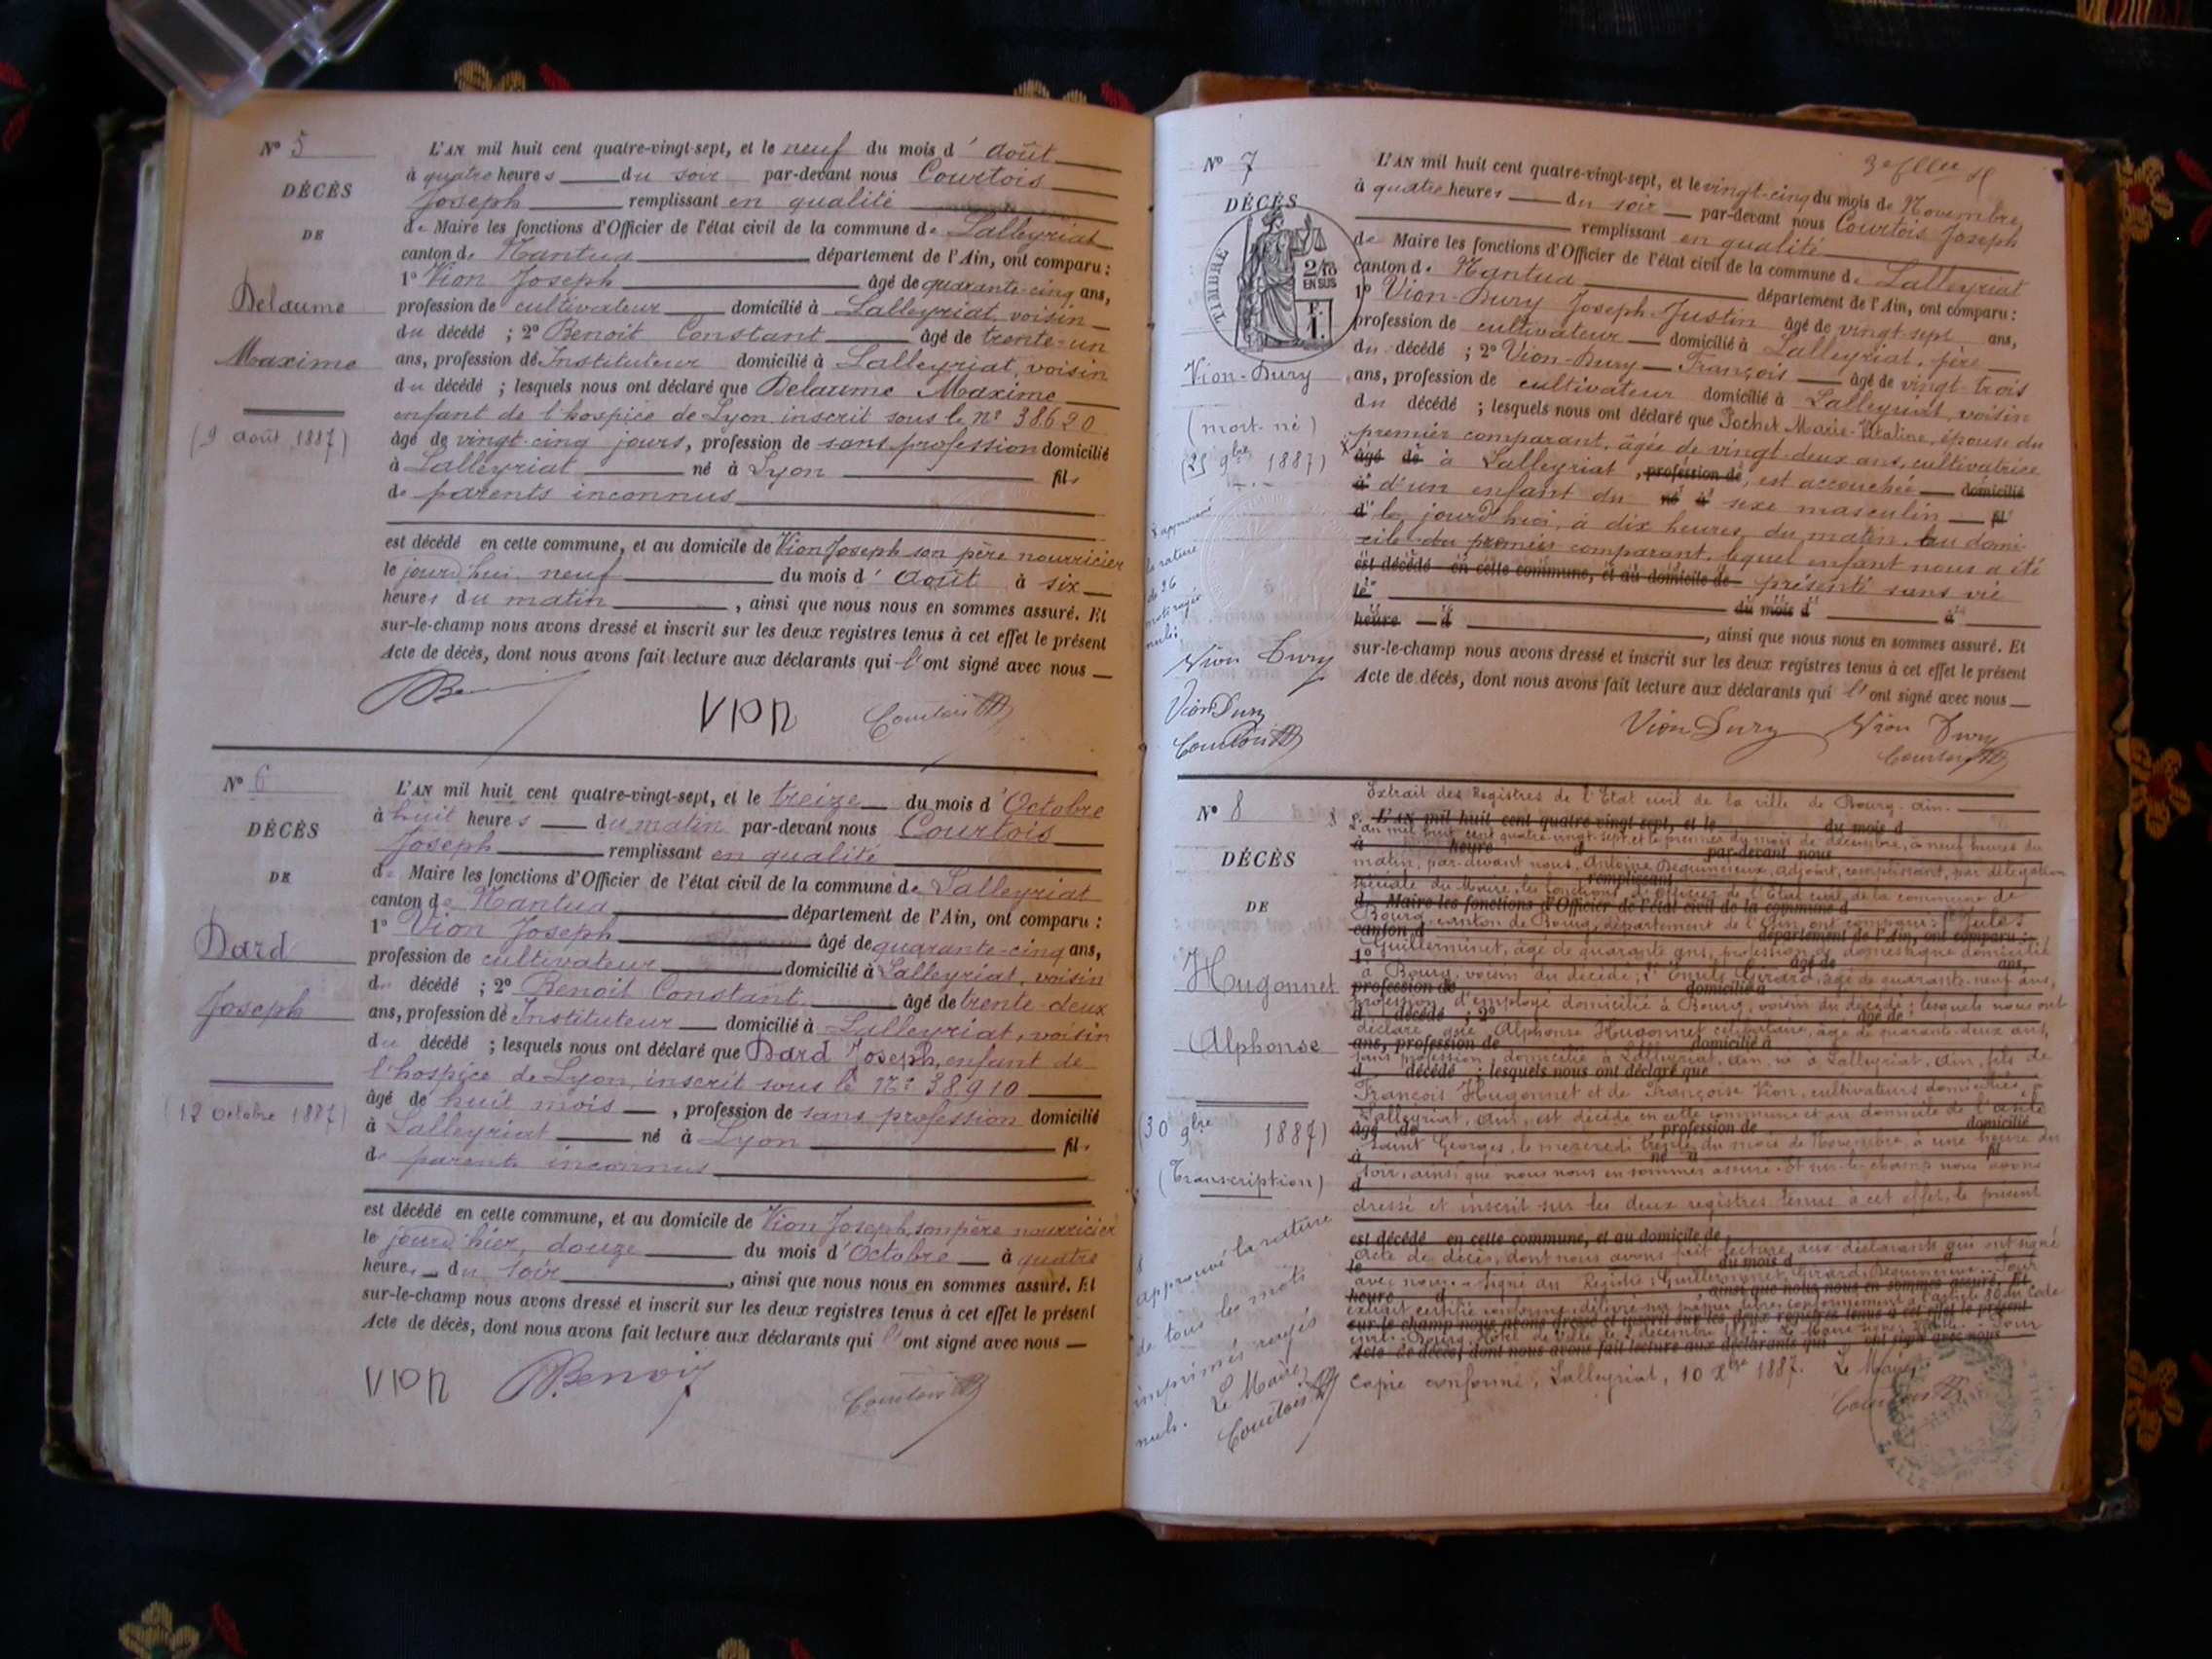 N° 5
DÉCÈS
DE
Delaume
Maxime
(9 août 1887)
L'AN mil huit cent quatre-vingt-sept, et le neuf du mois d'Août
à quatre heures du soir par-devant nous Courtois
Joseph remplissant en qualité
de Maire les fonctions d'Officier de l'état civil de la commune de Lalleyriat
canton de Nantua département de l'Ain, ont comparu :
1° Vion Joseph âgé de quarante-cinq ans,
profession de cultivateur domicilié à Lalleyriat, voisin
du décédé ; 2° Benoit Constant âgé de trente-un
ans, profession de Instituteur domicilié à Lalleyriat, voisin
du décédé ; lesquels nous ont déclaré que Delaume Maxime
enfant de l'hospice de Lyon, inscrit sous le n° 38620
âgé de vingt-cinq jours, profession de sans profession domicilié
à Lalleyriat né à Lyon fils
de parents inconnus
est décédé en cette commune, et au domicile de Vion Joseph son père nourricier
le jourd'hui neuf du mois d'Août à six
heures du matin, ainsi que nous nous en sommes assuré. Et
sur-le-champ nous avons dressé et inscrit sur les deux registres tenus à cet effet le présent
Acte de décès, dont nous avons fait lecture aux déclarants qui l'ont signé avec nous
VION Courtois
N° 6
DÉCÈS
DE
Dard
Joseph
(12 octobre 1887)
L'AN mil huit cent quatre-vingt-sept, et le treize du mois d'Octobre
à huit heures du matin par-devant nous Courtois
Joseph remplissant en qualité
de Maire les fonctions d'Officier de l'état civil de la commune de Lalleyriat
canton de Nantua département de l'Ain, ont comparu :
1° Vion Joseph âgé de quarante-cinq ans,
profession de cultivateur domicilié à Lalleyriat, voisin
du décédé ; 2° Benoit Constant âgé de trente-deux
ans, profession de Instituteur domicilié à Lalleyriat, voisin
du décédé ; lesquels nous ont déclaré que Dard Joseph, enfant de
l'hospice de Lyon, inscrit sous le N° 38910
âgé de huit mois, profession de sans profession domicilié
à Lalleyriat né à Lyon fils
de parents inconnus
est décédé en cette commune, et au domicile de Vion Joseph, son père nourricier
le jourd'hier, douze du mois d'Octobre à quatre
heures du soir, ainsi que nous nous en sommes assuré. Et
sur-le-champ nous avons dressé et inscrit sur les deux registres tenus à cet effet le présent
Acte de décès, dont nous avons fait lecture aux déclarants qui l'ont signé avec nous
VION Benoit Courtois
3e
N° 7
DÉCÈS
TIMBRE
2/10
EN SUS
F.
1.
Vion-Dury
(mort-né)
(25 9bre 1887)
x approuvé
la rature
de 26
mots rayés
nuls
Vion Dury
Vion Dury
Courtois
L'AN mil huit cent quatre-vingt-sept, et le vingt-cinq du mois de Novembre
à quatre heures du soir par-devant nous Courtois Joseph
remplissant en qualité
de Maire les fonctions d'Officier de l'état civil de la commune de Lalleyriat
canton de Nantua département de l'Ain, ont comparu :
1° Vion-Dury Joseph-Justin âgé de vingt-sept ans,
profession de cultivateur domicilié à Lalleyriat, père
du décédé ; 2° Vion-Dury François âgé de vingt-trois
ans, profession de cultivateur domicilié à Lalleyriat, voisin
du décédé ; lesquels nous ont déclaré que Pochet Marie-Vitaline, épouse du
premier comparant, âgée de vingt-deux ans, cultivatrice
x âgé de à Lalleyriat, profession de, est accouchée domicilié
à d'un enfant du né à sexe masculin fil
d le jourd'hui, à dix heures du matin, au domi-
cile du premier comparant, lequel enfant nous a été
est décédé en cette commune, et au domicile de présenté sans vie
le du mois d à
heure d, ainsi que nous nous en sommes assuré. Et
sur-le-champ nous avons dressé et inscrit sur les deux registres tenus à cet effet le présent
Acte de décès, dont nous avons fait lecture aux déclarants qui l'ont signé avec nous
Vion Dury Vion Dury
Courtois
N° 8
DÉCÈS
DE
Hugonnet
Alphonse
(30 9bre 1887)
(Transcription)
approuvé la rature
de tous les mots
imprimés rayés
nuls. Le Maire,
Courtois
Extrait des Registres de l'Etat civil de la ville de Bourg-Ain.
L'AN mil huit cent quatre-vingt-sept, et le du mois d
L'an mil huit cent quatre-vingt-sept et le premier du mois de décembre, à neuf heures du
à heure d par-devant nous
matin, par-devant nous, Antoine Dequincieux, adjoint, remplissant, par délégation
remplissant
spéciale du Maire, les fonctions d'officier de l'Etat civil de la commune de
d Maire les fonctions d'Officier de l'état civil de la commune d
Bourg, canton de Bourg, département de l'Ain, ont comparu : 1° Jules
canton d département de l'Ain, ont comparu :
Guillerminet, âgé de quarante ans, profession de domestique domicilié
1° âgé de ans,
à Bourg, voisin du décédé ; 2° Emile Girard, âgé de quarante-neuf ans,
profession de domicilié à
profession d'employé domicilié à Bourg, voisin du décédé ; lesquels nous ont
d décédé ; 2° âgé de
déclaré que Alphonse Hugonnet célibataire, âgé de quarante-deux ans,
ans, profession de domicilié à
sans profession, domicilié à Lalleyriat, Ain, né à Lalleyriat, Ain, fils de
d décédé ; lesquels nous ont déclaré que
François Hugonnet et de Françoise Vion, cultivateurs domiciliés à
Lalleyriat, Ain, est décédé en cette commune et au domicile de l'asile
âgé de, profession de domicilié
Saint Georges, le mercredi trente du mois de Novembre, à une heure du
à né à fil
soir, ainsi que nous nous en sommes assuré. Et sur-le-champ nous avons
d
dressé et inscrit sur les deux registres tenus à cet effet, le présent
est décédé en cette commune, et au domicile de
acte de décès, dont nous avons fait lecture aux déclarants qui ont signé
le du mois d
avec nous. Signé au Registre : Guillerminet, Girard, Dequincieux. Pour
heure d, ainsi que nous nous en sommes assuré. Et
extrait certifié conforme délivré sur papier libre, conformément à l'article 80 du Code
sur-le-champ nous avons dressé et inscrit sur les deux registres tenus à cet effet le présent
civil. Bourg, Hôtel de Ville, le 2 décembre 1887. Le Maire Pour
Acte de décès, dont nous avons fait lecture aux déclarants qui ont signé avec nous
Copie conforme, Lalleyriat, 10 Xbre 1887. Le Maire,
Courtois